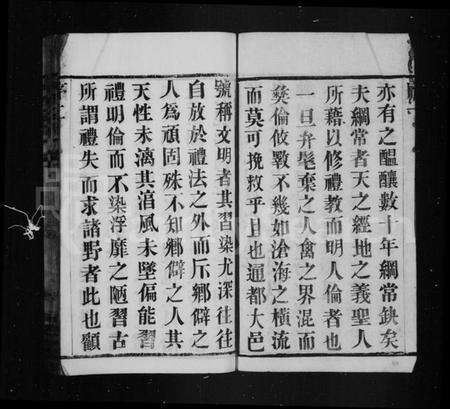 亦有之醞釀數十年綱常缺矣
夫綱常者天之經地之義聖人
所藉以修禮教而明人倫者也
一旦弁髦棄之人禽之界混而
彜倫攸斁不幾如滄海之橫流
而莫可挽救乎且也通都大邑
號稱文明者其習染尤深往往
自放於禮法之外而斥鄉僻之
人為頑固殊不知鄉僻之人其
天性未漓其淳風未墜偏能習
禮明倫而不染浮靡之陋習古
所謂禮失而求諸野者此也顧